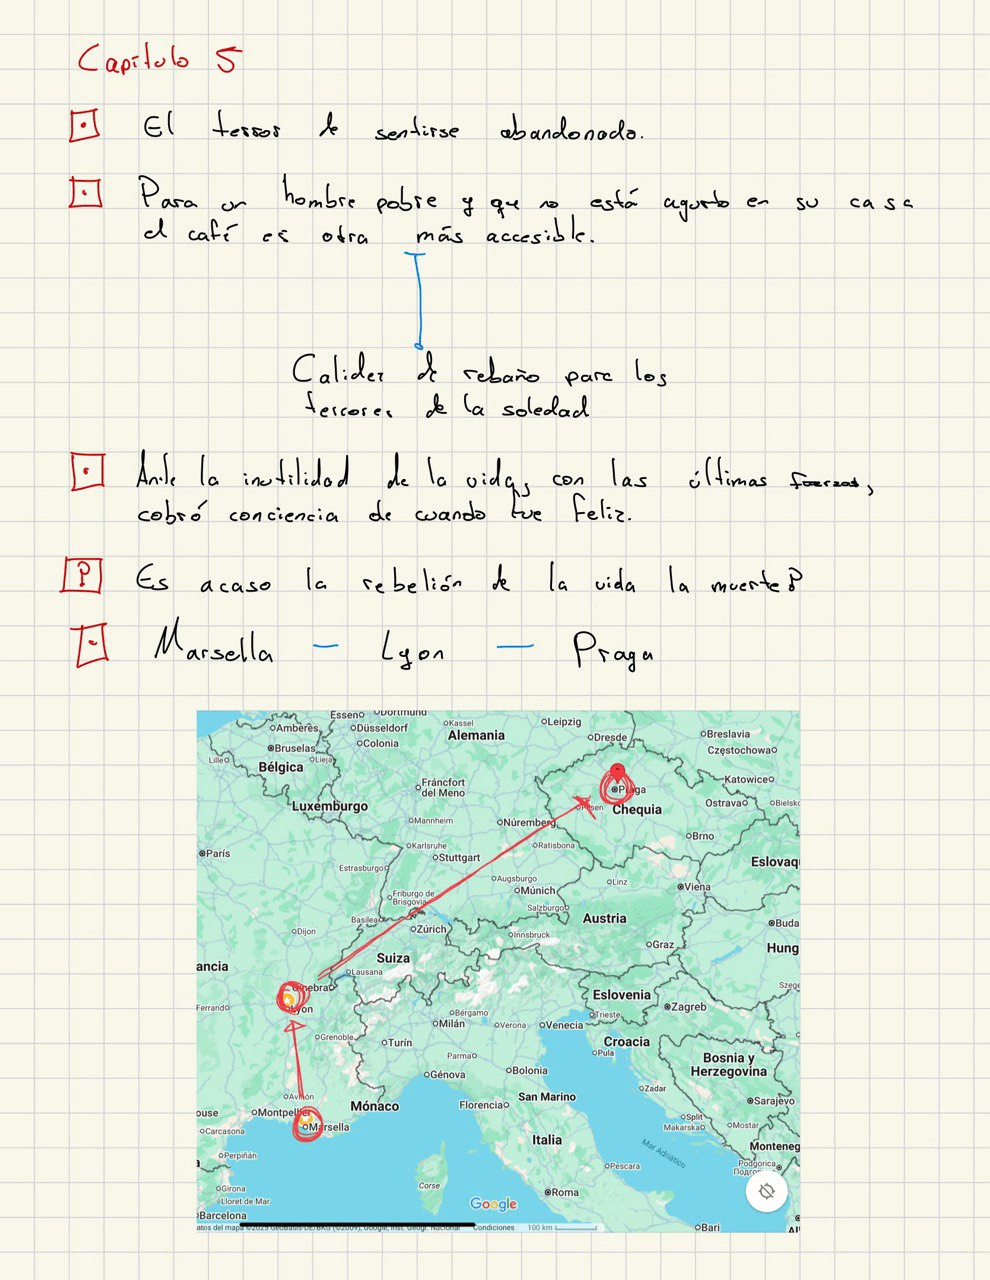 Capítulo 5
El terror de sentirse abandonado.
Para un hombre pobre y que no está agusto en su casa
el café es otra más accesible.
Calidez de rebaño para los
terrores de la soledad
Ante la inutilidad de la vida, con las últimas fuerzas,
cobró conciencia de cuando fue feliz.
? Es acaso la rebelión de la vida la muerte?
Marsella — Lyon — Praga
Essen Dortmund
Kassel
Leipzig
Amberes
Düsseldorf
Alemania
Dresde
Breslavia
Bruselas
Colonia
Częstochowa
Lille
Lieja
Bélgica
Fráncfort
del Meno
Katowice
Praga
Luxemburgo
Chequia
Ostrava
Bielsko
Mannheim
Núremberg
Brno
Karlsruhe
Ratisbona
París
Stuttgart
Eslovaq
Estrasburgo
Augsburgo
Linz
Viena
Friburgo de
Brisgovia
Múnich
Salzburgo
Basilea
Austria
Buda
Dijon
Zúrich
Innsbruck
Graz
Hung
ancia
Suiza
Lausana
Ginebra
Eslovenia
Szege
Ferrando
Lyon
Bérgamo
Trieste
Zagreb
Milán
Verona
Venecia
Grenoble
Turín
Croacia
Parma
Pula
Bosnia y
Herzegovina
Génova
Bolonia
Zadar
Aviñón
San Marino
Sarajevo
ouse
Montpellier
Mónaco
Florencia
Split
Makarska
Mostar
Carcasona
Marsella
Italia
Monteneg
Perpiñán
Mar Adriático
Podgorica
Corse
Pescara
Girona
Lloret de Mar
Roma
Barcelona
Google
atos del mapa ©2025 GeoBasis-DE/BKG (©2009), Google, Inst. Geogr. Nacional Condiciones 100 km
Bari